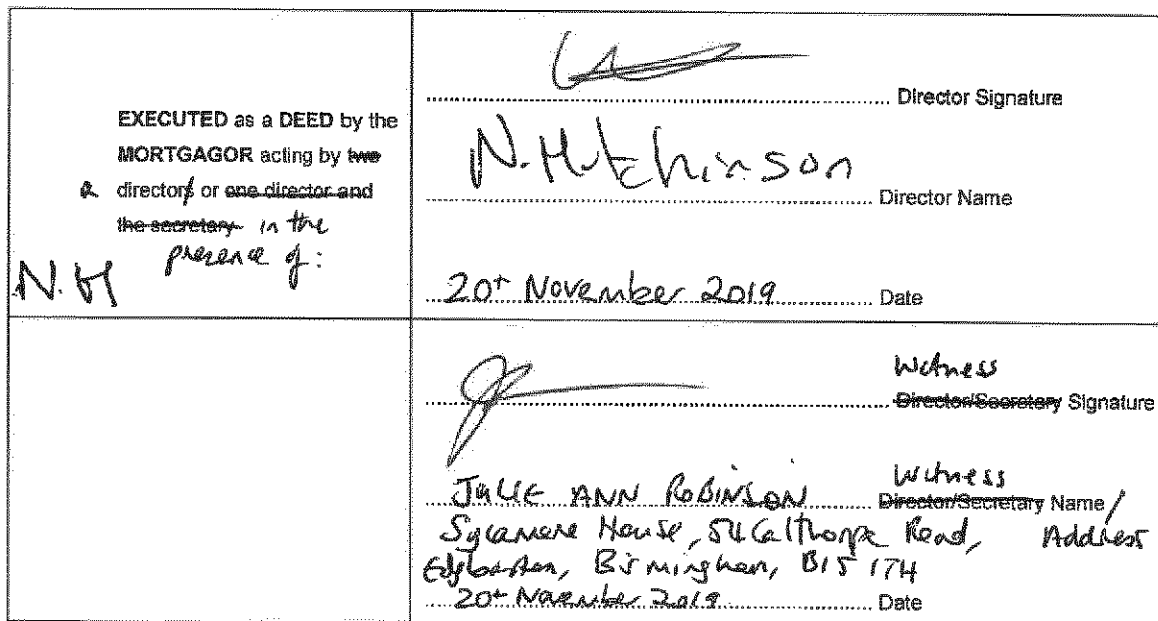 EXECUTED as a DEED by the
MORTGAGOR acting by two
a director or one director and
the secretary in the
presence of:
N.H
Director Signature
N. Hutchinson
Director Name
20t November 2019 Date
Witness
Director/Secretary Signature
Witness
JULIE ANN ROBINSON Director/Secretary Name/
Sycamore House, 54 Calthorpe Road, Address
Edgbaston, Birmingham, B15 1TH
20t November 2019 Date